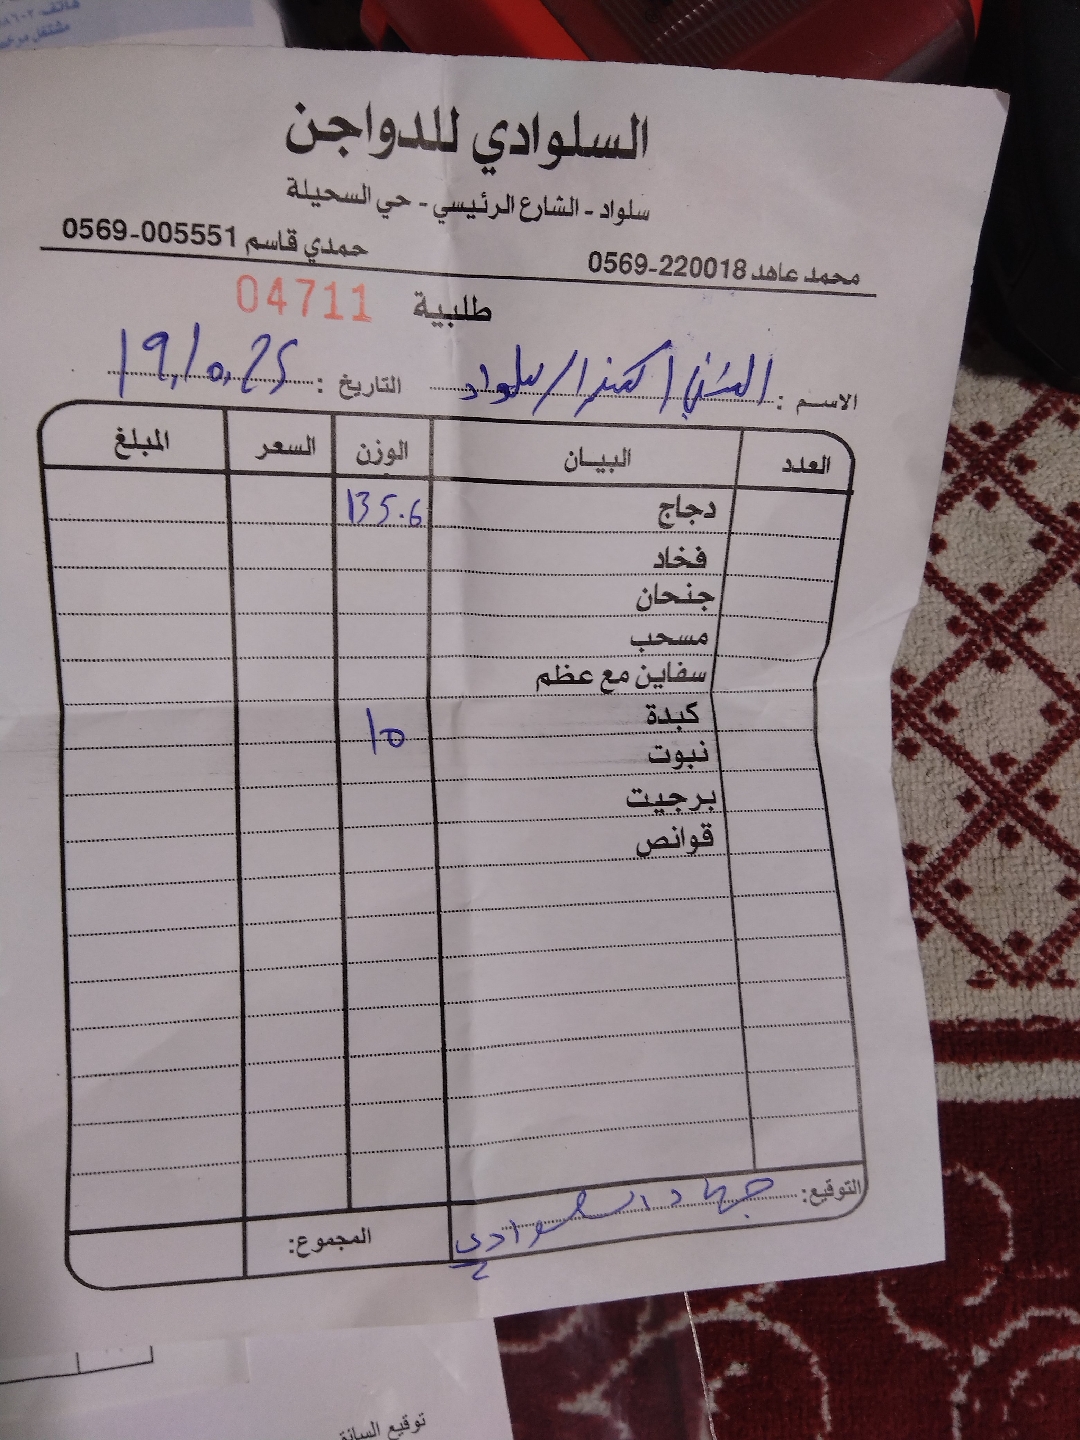 هاتف:
مشتغل مرخص
السلوادي للدواجن
سلواد - الشارع الرئيسي - حي السحيلة
محمد عاهد 0569-220018 حمدي قاسم 0569-005551
طلبية 04711
الاسم : / سلواد التاريخ : 19,10,25
العدد البيان الوزن السعر المبلغ
دجاج 135.6
فخاد
جنحان
مسحب
سفاين مع عظم
كبدة 10
نبوت
برجيت
قوانص
التوقيع: جهاد السلوادي
المجموع:
توقيع